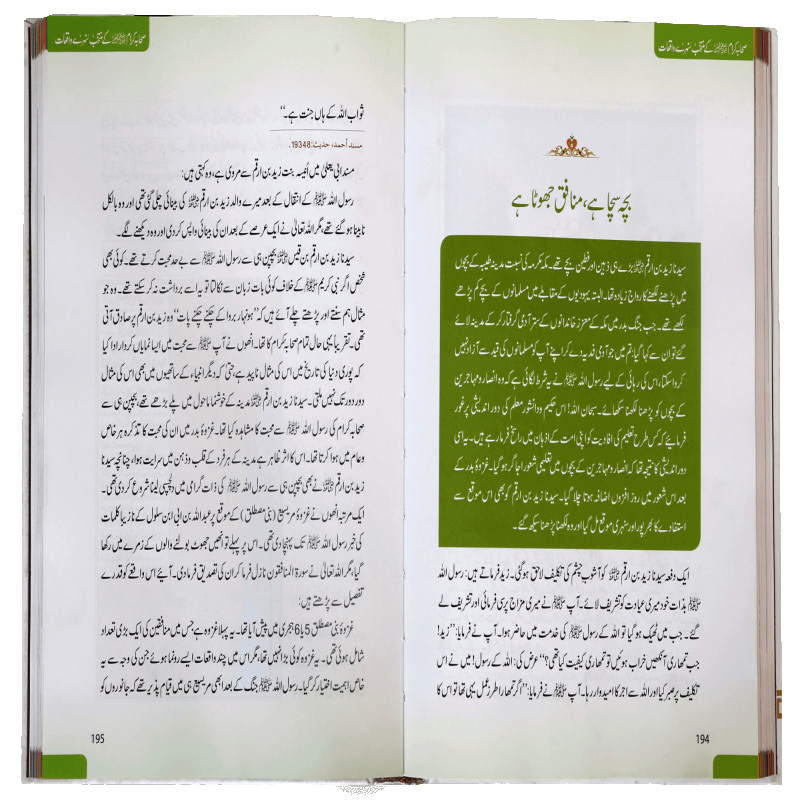 صحابہ کرام ﷢ کے منتخب سنہرے واقعات
بچہ سچا ہے، منافق جھوٹا ہے
سیدنا زید بن ارقم ﷜ بڑے ہی ذہین اور فطین بچے تھے۔ مکہ مکرمہ کی نسبت مدینہ طیبہ کے بچوں
میں پڑھنے لکھنے کا رواج زیادہ تھا۔ البتہ یہودیوں کے مقابلے میں مسلمانوں کے بچے کم پڑھے
لکھے تھے۔ جب جنگ بدر میں مکہ کے معزز خاندانوں کے ستر آدمی گرفتار کر کے مدینہ لائے
گئے تو ان سے کہا گیا: تم میں جو آدمی فدیہ دے کر اپنے آپ کو مسلمانوں کی قید سے آزاد نہیں
کروا سکتا، اس کی رہائی کے لیے رسول اللہ ﷺ نے یہ شرط لگائی ہے کہ وہ انصار و مہاجرین
کے بچوں کو پڑھنا لکھنا سکھائے۔ سبحان اللہ! اس حکیم و دانشور معلم کی دور اندیشی پر غور
فرمایئے کہ کس طرح تعلیم کی افادیت کو اپنی امت کے اذہان میں راسخ فرما رہے ہیں۔ یہ اسی
دور اندیشی کا نتیجہ تھا کہ انصار و مہاجرین کے بچوں میں تعلیمی شعور اجاگر ہو گیا۔ غزوۂ بدر کے
بعد اس شعور میں روز افزوں اضافہ ہوتا چلا گیا۔ سیدنا زید بن ارقم کو بھی اس موقع سے
استفادے کا بھرپور اور سنہری موقع مل گیا اور وہ لکھنا پڑھنا سیکھ گئے۔
ایک دفعہ سیدنا زید بن ارقم ﷜ کو آشوبِ چشم کی تکلیف لاحق ہو گئی۔ زید فرماتے ہیں: رسول اللہ
ﷺ بذات خود میری عیادت کو تشریف لائے۔ آپ ﷺ نے میری مزاج پرسی فرمائی اور تشریف لے
گئے۔ جب میں ٹھیک ہو گیا تو اللہ کے رسول ﷺ کی خدمت میں حاضر ہوا۔ آپ نے فرمایا: ’’زید!
جب تمھاری آنکھیں خراب ہوئیں تو تمھاری کیفیت کیا تھی؟‘‘ عرض کی: اللہ کے رسول! میں نے اس
تکلیف پر صبر کیا اور اللہ سے اجر کا امیدوار رہا۔ آپ ﷺ نے فرمایا: ’’اگر تمھارا طرز عمل یہی تھا تو اس کا
194
صحابہ کرام ﷢ کے منتخب سنہرے واقعات
ثواب اللہ کے ہاں جنت ہے۔‘‘
مسند أحمد، حدیث: 19348.
مسند ابی یعلیٰ میں اُنیسہ بنت زید بن ارقم سے مروی ہے، وہ کہتی ہیں:
رسول اللہ ﷺ کے انتقال کے بعد میرے والد زید بن ارقم ﷜ کی بینائی چلی گئی تھی اور وہ بالکل
نابینا ہو گئے تھے، مگر اللہ تعالیٰ نے ایک عرصے کے بعد ان کی بینائی واپس کر دی اور وہ دیکھنے لگے۔
سیدنا زید بن ارقم بن قیس ﷜ بچپن ہی سے رسول اللہ ﷺ سے بے حد محبت کرتے تھے۔ کوئی بھی
شخص اگر نبی کریم ﷺ کے خلاف کوئی بات زبان سے نکالتا تو یہ اسے برداشت نہ کر سکتے تھے۔ وہ جو
مثال ہم سنتے اور پڑھتے چلے آئے ہیں کہ ’’ہونہار بروا کے چکنے چکنے پات‘‘ وہ زید بن ارقم پر صادق آتی
تھی۔ تقریباً یہی حال تمام صحابہ کرام کا تھا۔ انھوں نے آپ ﷺ سے محبت میں ایسا نمایاں کردار ادا کیا
کہ پوری دنیا کی تاریخ میں اس کی مثال ناپید ہے، حتیٰ کہ دیگر انبیاء کے ساتھیوں میں بھی اس کی مثال
دور دور تک نہیں ملتی۔ سیدنا زید بن ارقم ﷜ مدینہ کے خوشنما ماحول میں پلے بڑھے تھے، بچپن ہی سے
صحابہ کرام کی رسول اللہ ﷺ سے محبت کا مشاہدہ کیا تھا۔ غزوۂ بدر میں ان کی محبت کا تذکرہ ہر خاص
و عام میں ہوا کرتا تھا۔ اس کا اثر ظاہر ہے مدینہ کے ہر فرد کے قلب و ذہن میں سرایت ہوا، چنانچہ سیدنا
زید بن ارقم ﷜ نے بھی بچپن ہی سے رسول اللہ ﷺ کی ذات گرامی میں دلچسپی لینا شروع کر دی تھی۔
ایک مرتبہ انھوں نے غزوۂ مریسیع (بنی مصطلق) کے موقع پر عبداللہ بن ابی ابن سلول کے نازیبا کلمات
کی خبر رسول اللہ ﷺ تک پہنچا دی تھی۔ اس پر پہلے تو انھیں جھوٹ بولنے والوں کے زمرے میں رکھا
گیا، مگر اللہ تعالیٰ نے سورۃ المنافقون نازل فرما کر ان کی تصدیق فرما دی۔ آیئے اس واقعے کو قدرے
تفصیل سے پڑھتے ہیں:
غزوۂ بنی مصطلق 5 یا 6 ہجری میں پیش آیا تھا۔ یہ پہلا غزوہ ہے جس میں منافقین کی ایک بڑی تعداد
شامل ہوئی تھی۔ یہ غزوہ کوئی بڑا نہیں تھا، مگر اس میں چند واقعات ایسے رونما ہوئے جن کی وجہ سے یہ
خاص اہمیت اختیار کر گیا۔ رسول اللہ ﷺ جنگ کے بعد ابھی مریسیع ہی میں قیام پذیر تھے کہ جانوروں کو
195